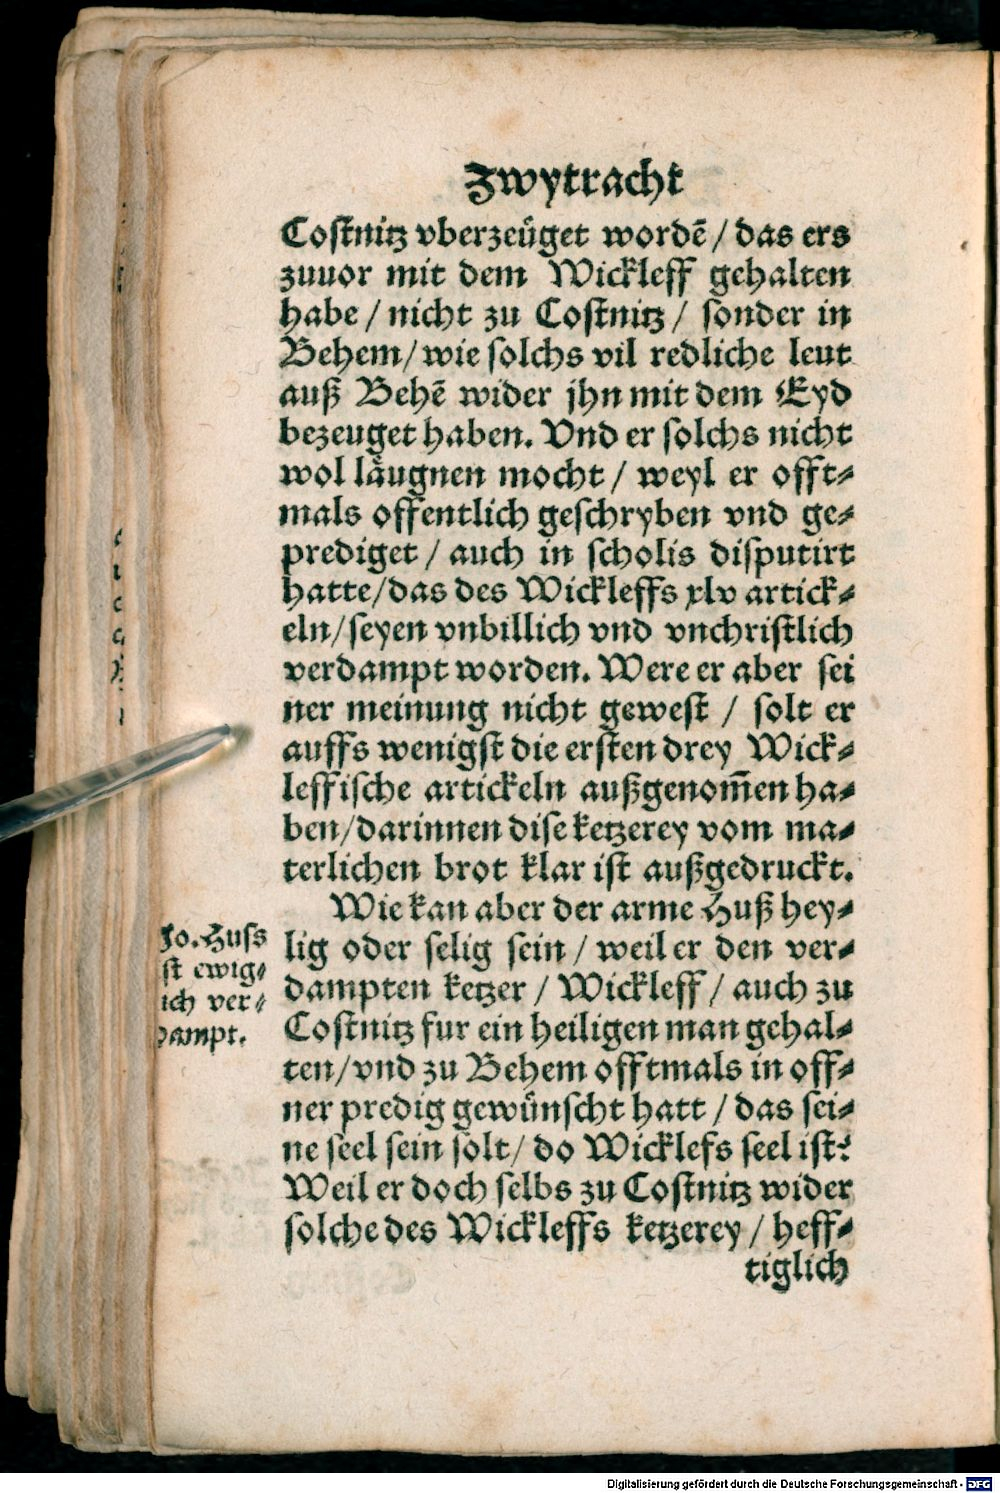 Zwytracht
Costnitz vberzeüget wordē / das ers
zuuor mit dem Wickleff gehalten
habe / nicht zu Costnitz / sonder in
Behem / wie solchs vil redliche leut
auß Behē wider jhn mit dem Eyd
bezeuget haben. Vnd er solchs nicht
wol läugnen mocht / weyl er offt-
mals offentlich geschryben vnd ge-
prediget / auch in scholis disputirt
hatte / das des Wickleffs xlv artick-
eln / seyen vnbillich vnd vnchristlich
verdampt worden. Were er aber sei
ner meinung nicht gewest / solt er
auffs wenigst die ersten drey Wick-
leffische artickeln außgenom̄en ha-
ben / darinnen dise ketzerey vom ma-
terlichen brot klar ist außgedruckt.
Wie kan aber der arme Huß hey-
lig oder selig sein / weil er den ver-
dampten ketzer / Wickleff / auch zu
Costnitz fur ein heiligen man gehal-
ten / vnd zu Behem offtmals in off-
ner predig gewünscht hatt / das sei-
ne seel sein solt / do Wicklefs seel ist?
Weil er doch selbs zu Costnitz wider
solche des Wickleffs ketzerey / heff-
tiglich
Jo. Huss
st ewig-
ich ver-
dampt.
Digitalisierung gefördert durch die Deutsche Forschungsgemeinschaft - DFG